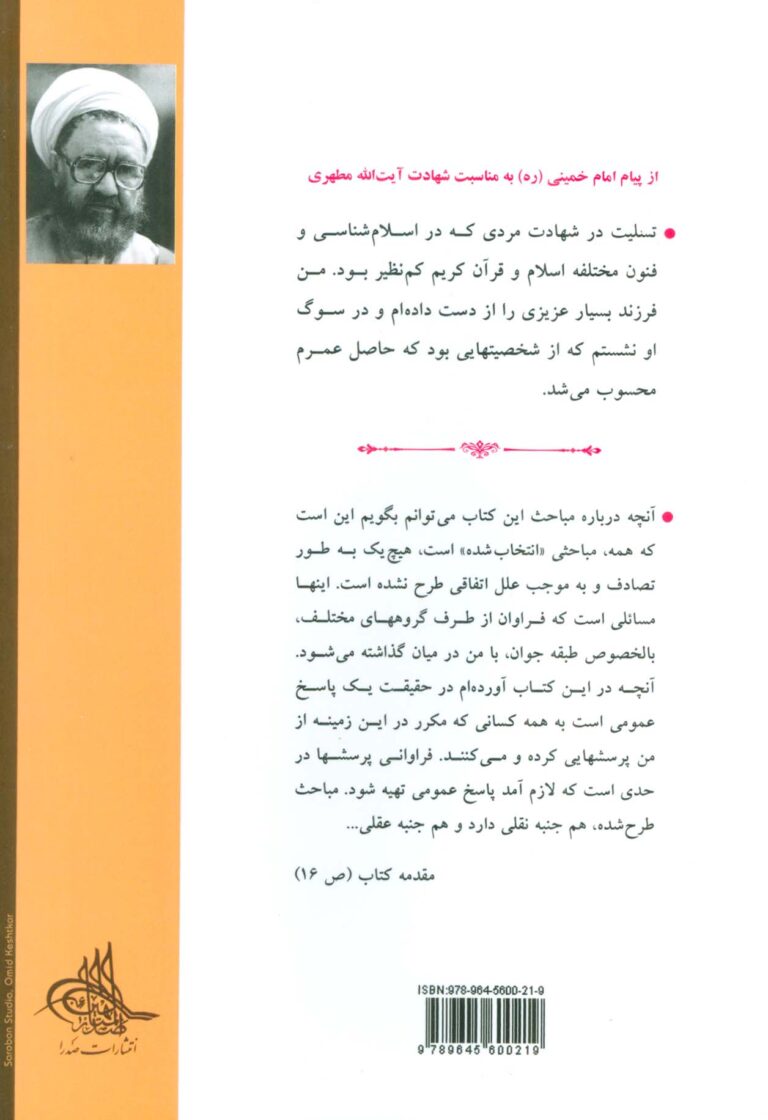 از پیام امام خمینی (ره) به مناسبت شهادت آیت‌الله مطهری
● تسلیت در شهادت مردی که در اسلام‌شناسی و
فنون مختلفه اسلام و قرآن کریم کم‌نظیر بود. من
فرزند بسیار عزیزی را از دست داده‌ام و در سوگ
او نشستم که از شخصیتهایی بود که حاصل عمرم
محسوب می‌شد.
● آنچه درباره مباحث این کتاب می‌توانم بگویم این است
که همه، مباحثی «انتخاب‌شده» است، هیچ‌یک به طور
تصادف و به موجب علل اتفاقی طرح نشده است. اینها
مسائلی است که فراوان از طرف گروههای مختلف،
بالخصوص طبقه جوان، با من در میان گذاشته می‌شود.
آنچه در این کتاب آورده‌ام در حقیقت یک پاسخ
عمومی است به همه کسانی که مکرر در این زمینه از
من پرسشهایی کرده و می‌کنند. فراوانی پرسشها در
حدی است که لازم آمد پاسخ عمومی تهیه شود. مباحث
طرح‌شده، هم جنبه نقلی دارد و هم جنبه عقلی...
مقدمه کتاب (ص ۱۶)
ISBN:978-964-5600-21-9
9 789645 600219
انتشارات صدرا
Saroban Studio, Omid Keshtkar